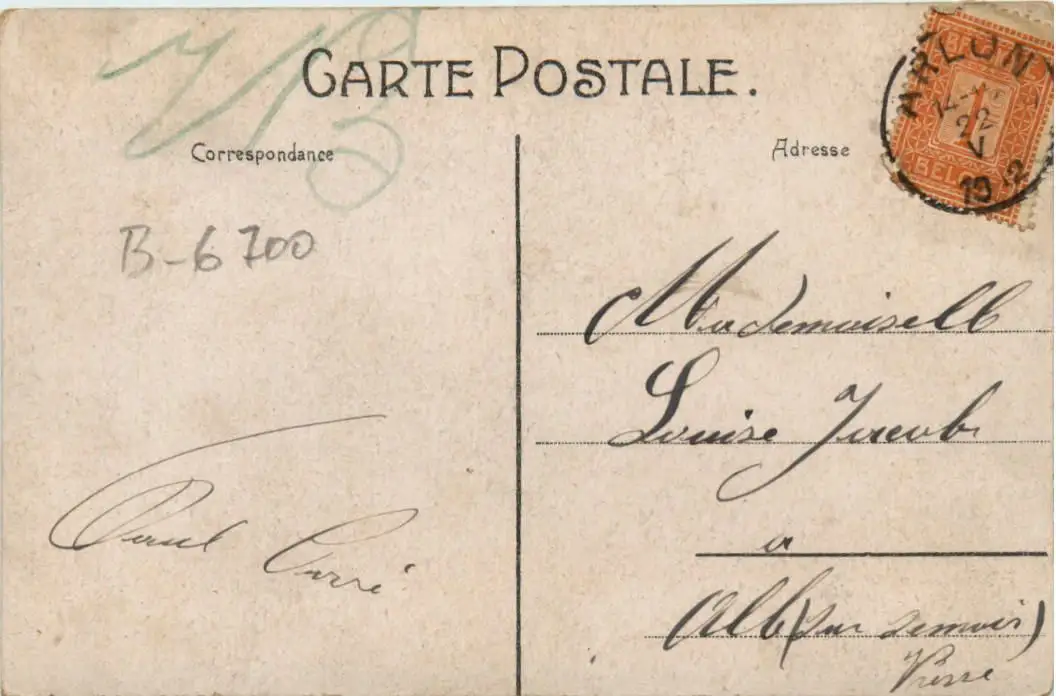 CARTE POSTALE.
Correspondance
Adresse
ARLON
22
V
19 12
1
BEL
B-6700
Mademoiselle
Louise Jacob
a
Alle (sur semois)
Paul